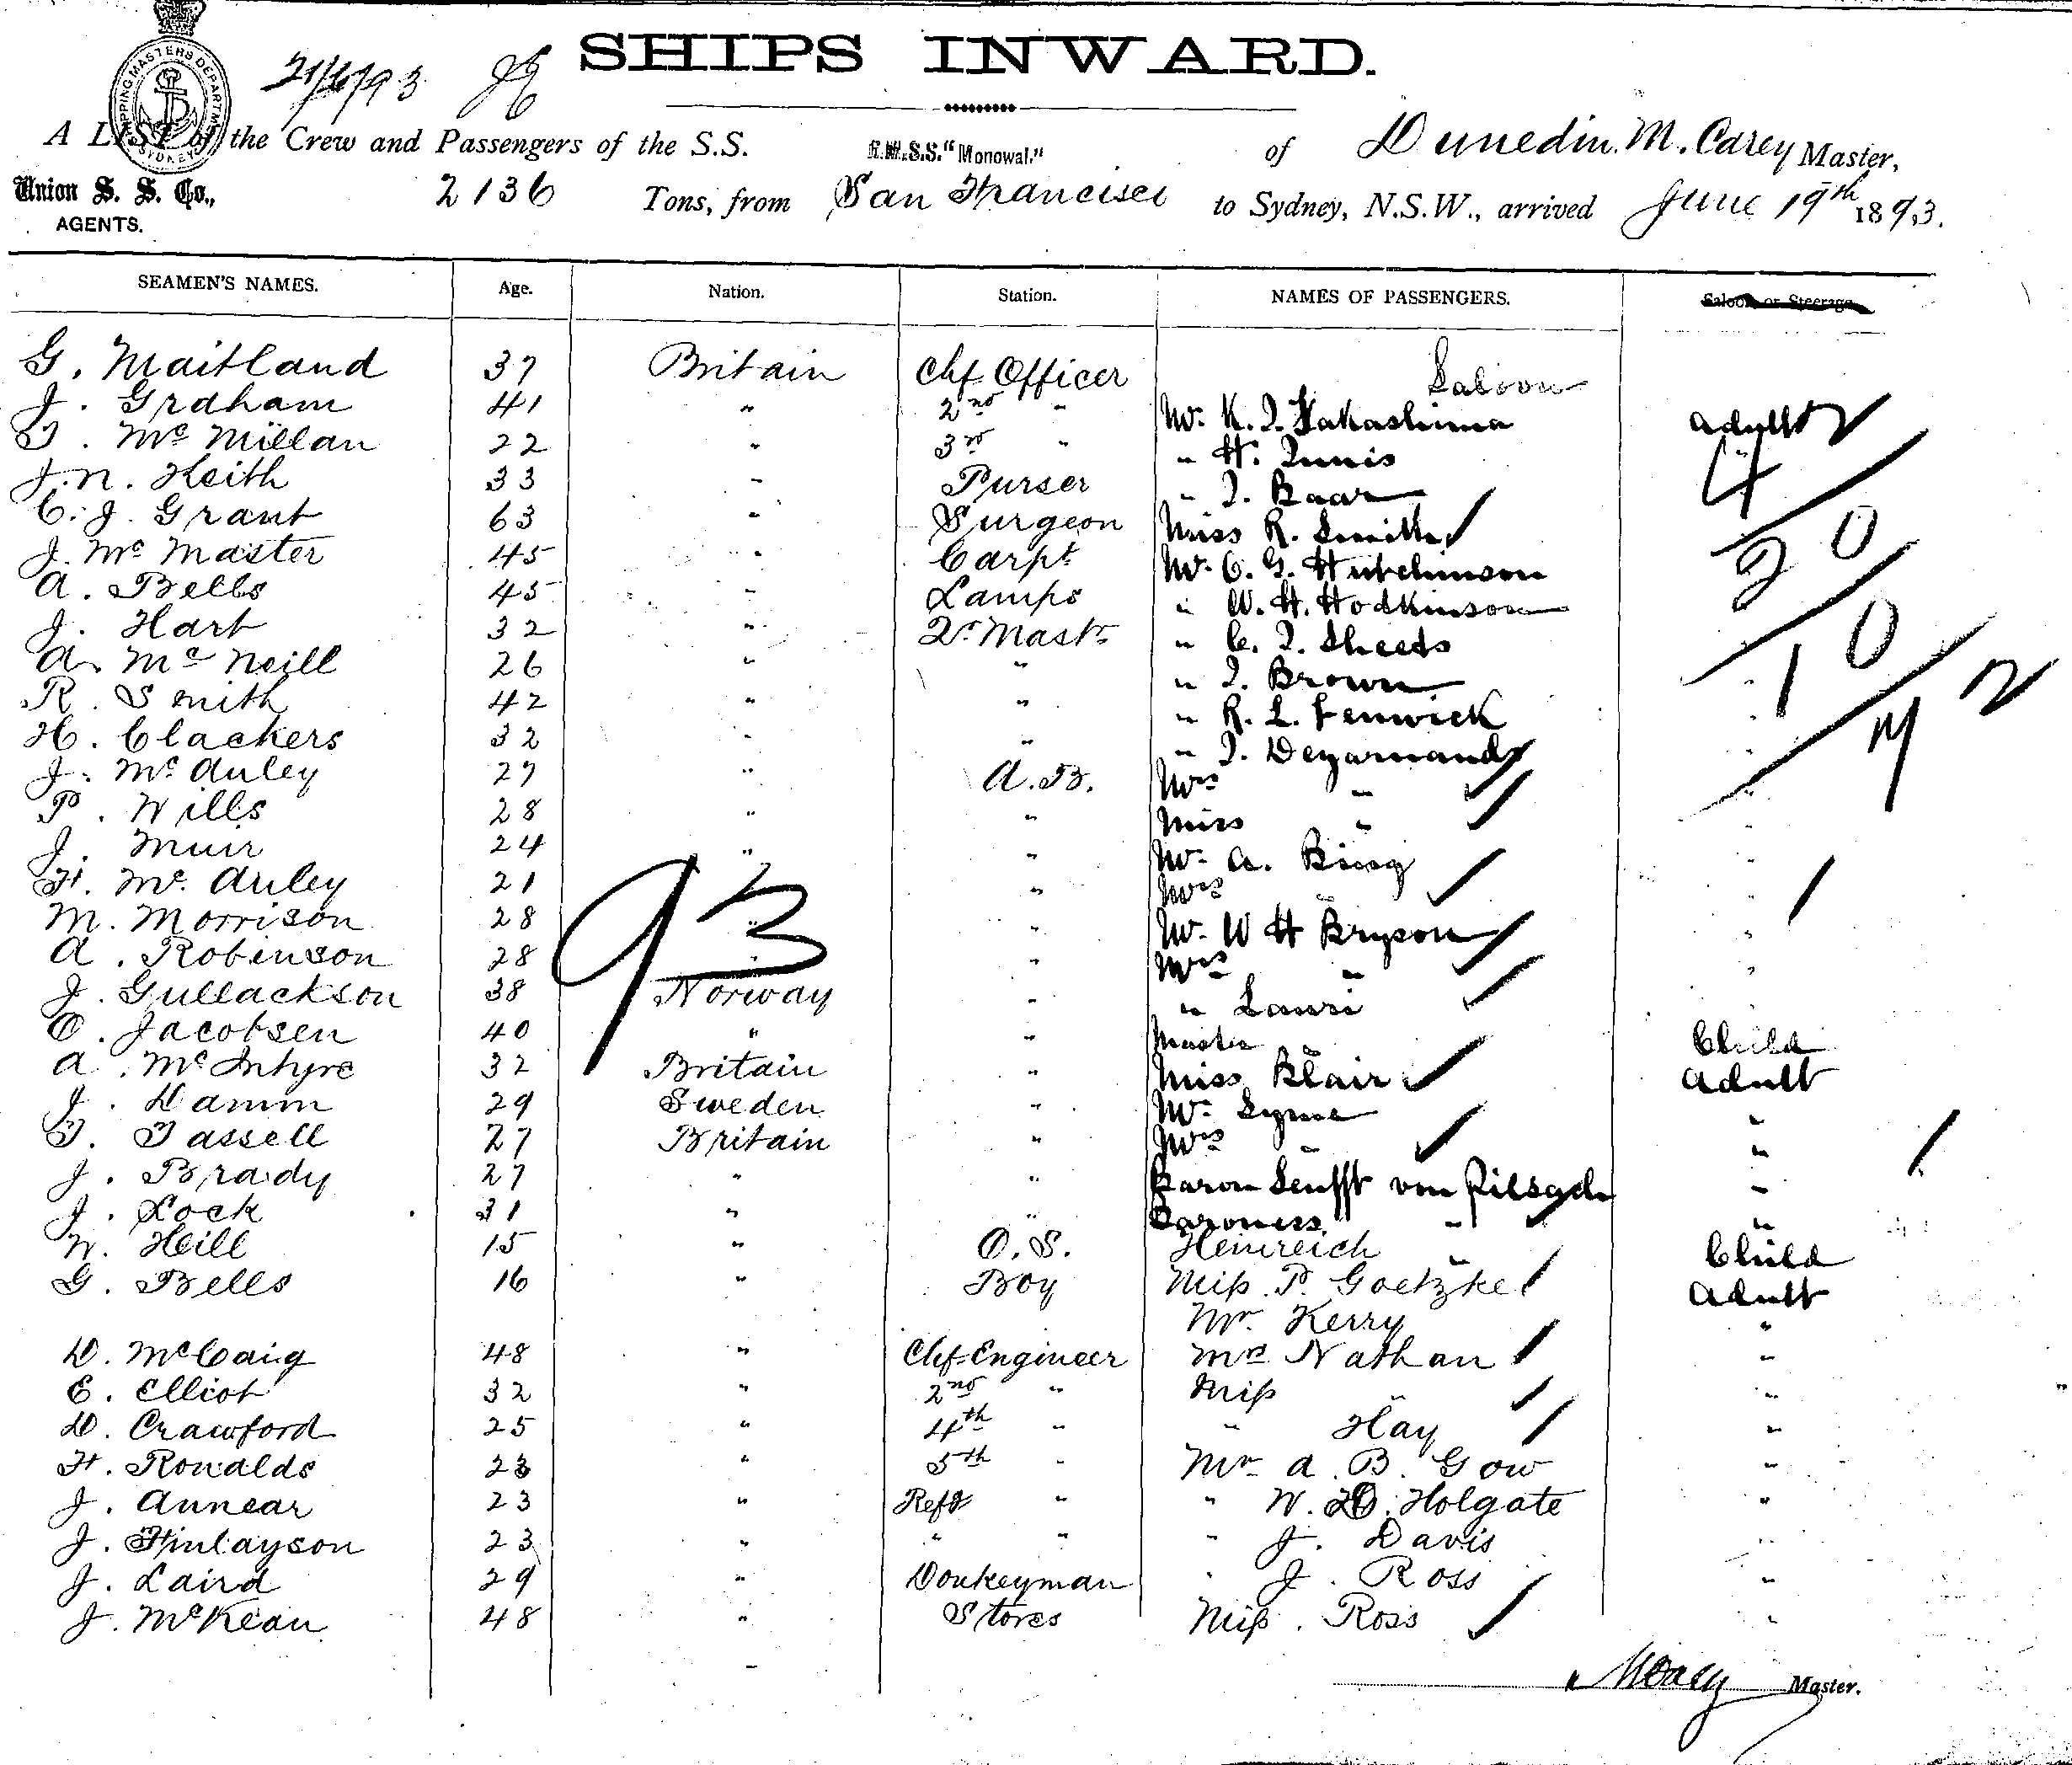 SHIPPING MASTERS DEPARTMENT SYDNEY
21/6/93
SHIPS INWARD.
A LIST of the Crew and Passengers of the S.S. R.M.S.S. "Monowai." of Dunedin. M. Carey Master,
Union S. S. Co., AGENTS. 2136 Tons, from San Francisco to Sydney, N.S.W., arrived June 19th 1893.
SEAMEN'S NAMES. Age. Nation. Station. NAMES OF PASSENGERS. Saloon or Steerage
Saloon
G. Maitland 37 Britain Chf. Officer
J. Graham 41 " 2nd " Mr. K. T. Takashima Adult
T. McMillan 22 " 3rd " " H. Tunis "
J. N. Keith 33 " Purser " T. Baar
C. J. Grant 63 " Surgeon Miss R. Smith
J. McMaster 45 " Carpt. Mr. C. G. Hutchinson
A. Bells 45 " Lamps " W. H. Hodkinson
J. Hart 32 " Qr. Mastr. " C. T. Sheeds
A. McNeill 26 " " " T. Brown
R. Smith 42 " " " R. L. Fenwick
H. Clackers 32 " " " T. Degarmand
J. McAuley 27 " A.B. Mrs "
P. Wills 28 " " Miss " "
J. Muir 24 " " Mr. A. Bing "
H. McAuley 21 " " Mrs " "
M. Morrison 28 " " Mr. W H Bryson "
A. Robinson 28 " " Mrs " "
J. Gullackson 38 Norway " " Lauri
O. Jacobsen 40 " " Master " Child
A. McIntyre 32 Britain " Miss Blair Adult
J. Damm 29 Sweden " Mr. Syme "
T. Tassell 27 Britain " Mrs " "
J. Brady 27 " " Baron Senfft von Pilsach "
J. Lock 31 " " Baroness " "
W. Heill 15 " O.S. Heinreich " Child
G. Bells 16 " Boy Miss P. Goetzke Adult
Mr. Kerry "
D. McCaig 48 " Chf. Engineer Mrs Nathan "
E. Elliot 32 " 2nd " Miss " "
D. Crawford 25 " 4th " " Hay "
H. Ronalds 23 " 5th " Mr A. B. Gow "
J. Annear 23 " Refg " " W. D. Holgate "
J. Finlayson 23 " " " " J. Davis "
J. Laird 29 " Donkeyman " J. Ross "
J. McKean 48 " Stores Miss. Ross "
93
4
20
10
M Carey Master.